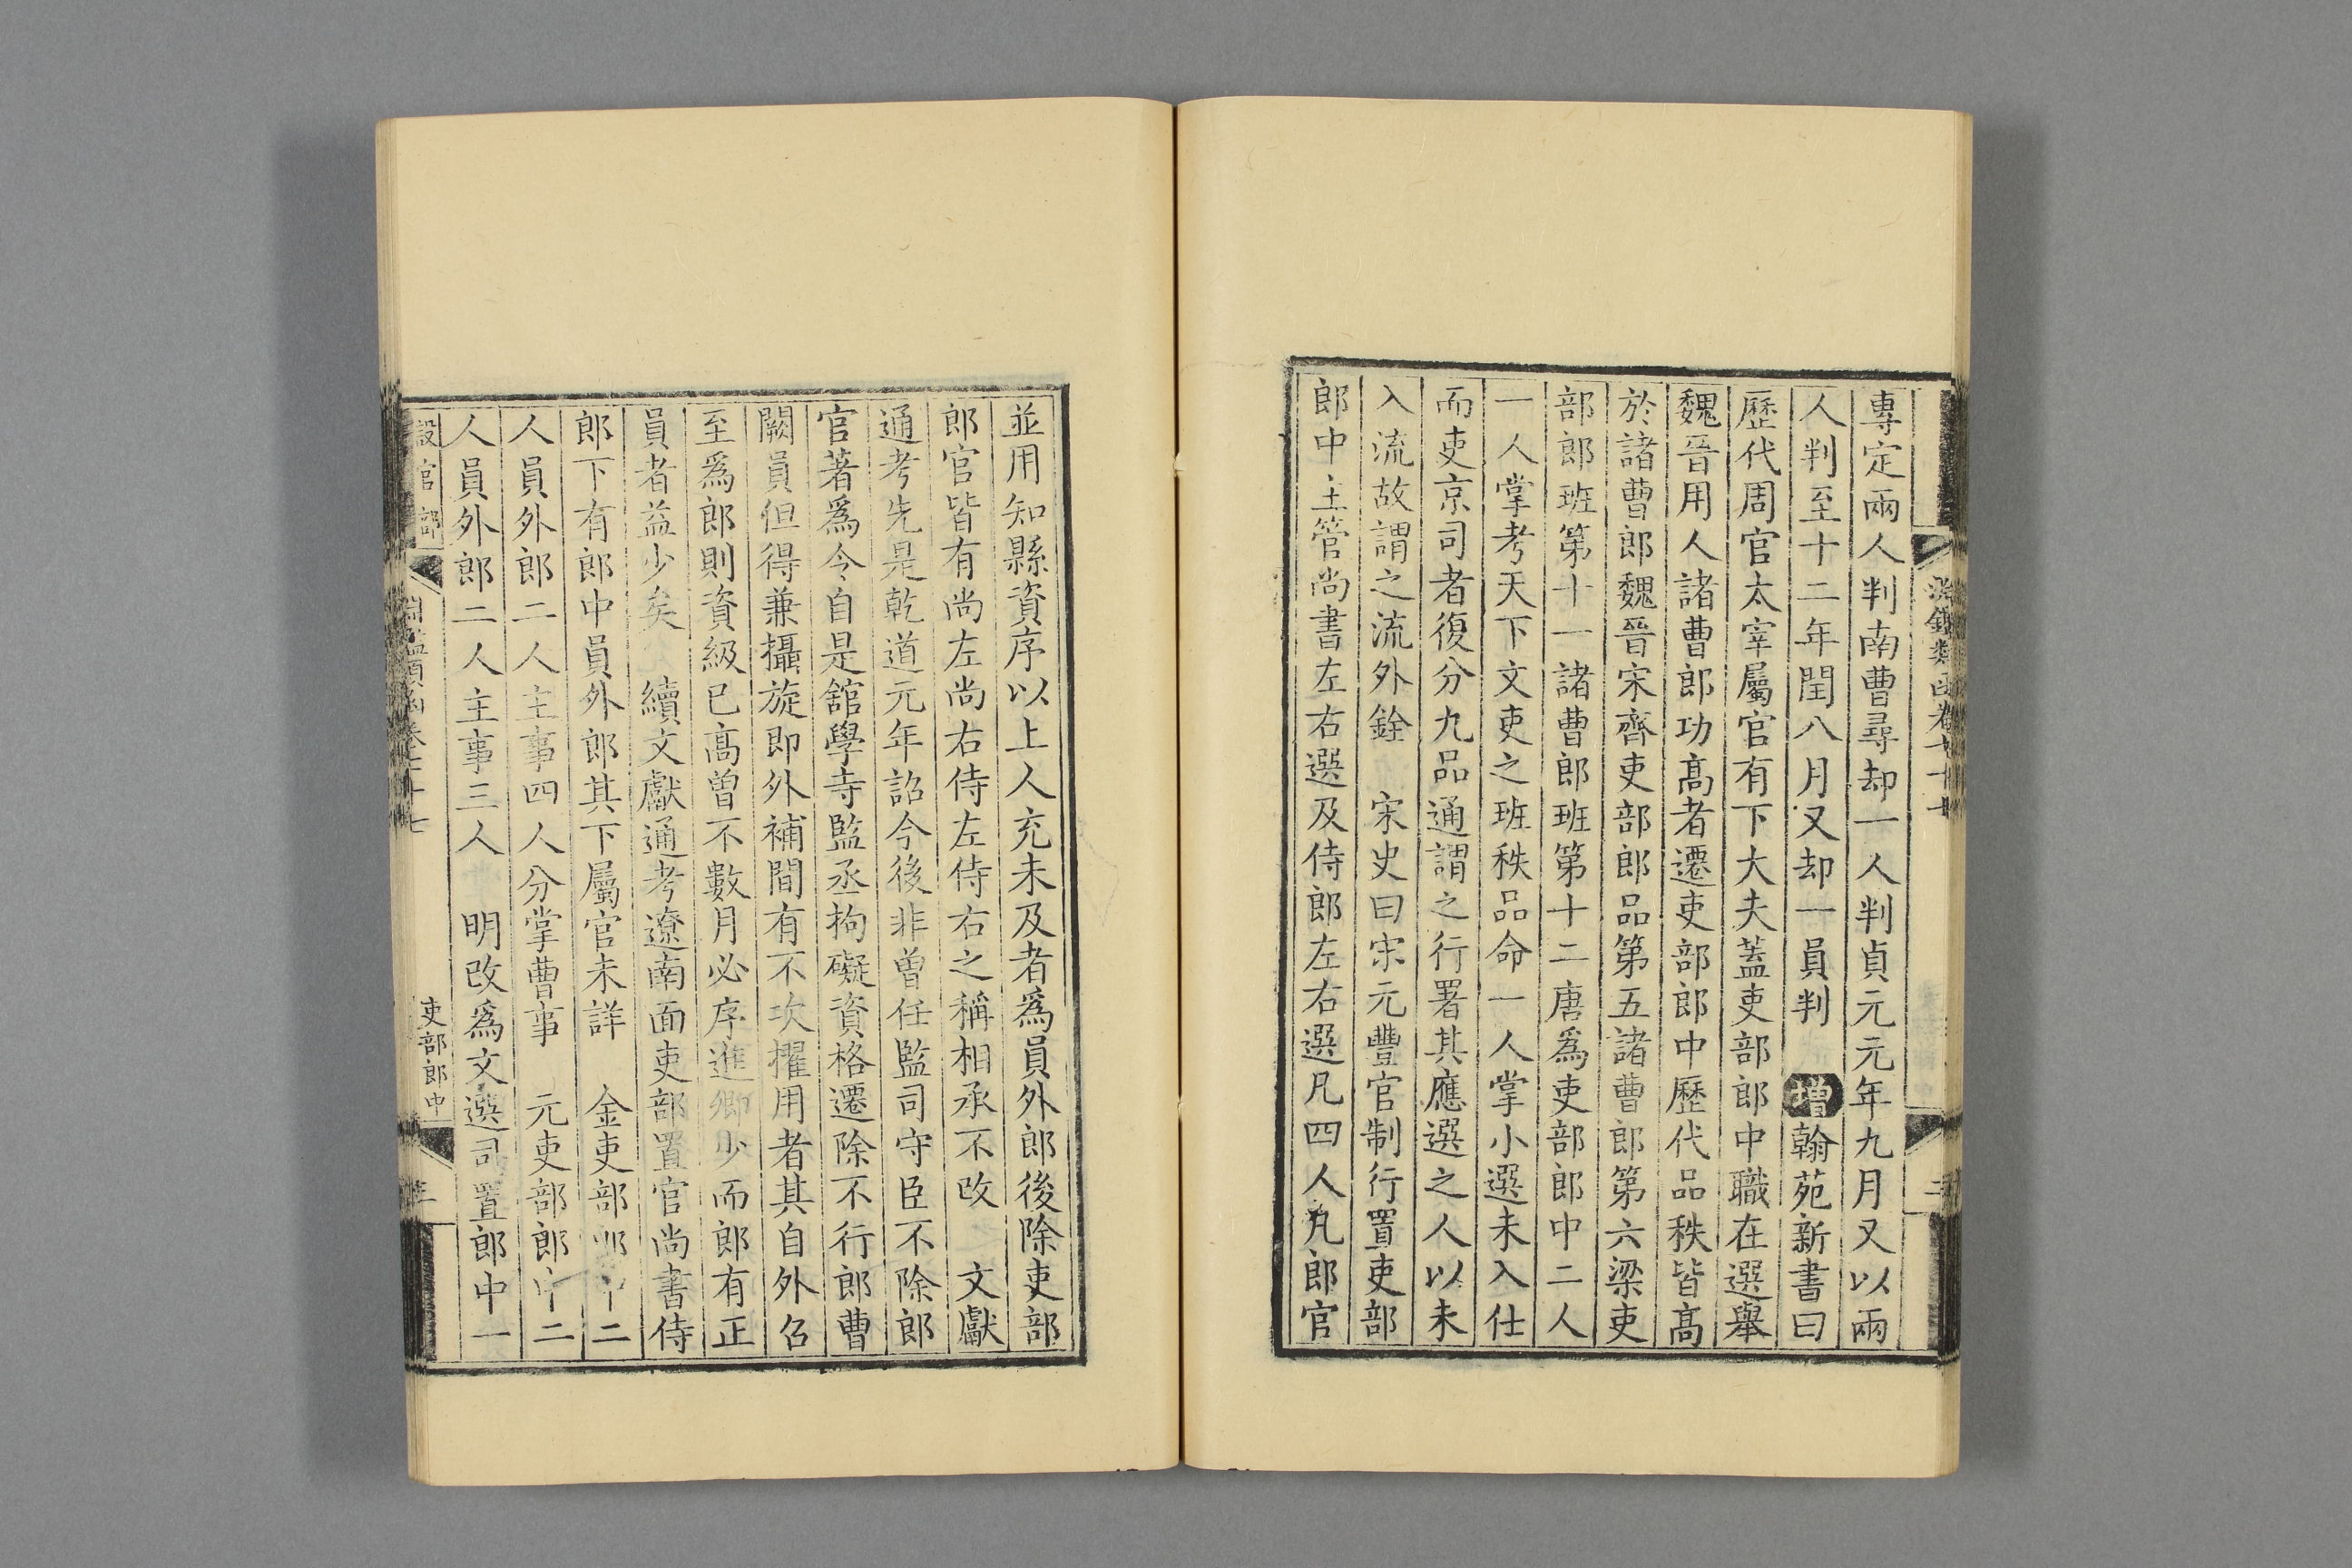 淵鑑類函卷七十七
二
專定兩人判南曹尋却一人判貞元元年九月又以兩
人判至十二年閏八月又却一員判 增翰苑新書曰
歷代周官太宰屬官有下大夫蓋吏部郎中職在選舉
魏晉用人諸曹郎功高者遷吏部郎中歷代品秩皆高
於諸曹郎魏晉宋齊吏部郎品第五諸曹郎第六梁吏
部郎班第十一諸曹郎班第十二唐爲吏部郎中二人
一人掌考天下文吏之班秩品命一人掌小選未入仕
而吏京司者復分九品通謂之行署其應選之人以未
入流故謂之流外銓 宋史曰宋元豐官制行置吏部
郎中主管尚書左右選及侍郎左右選凡四人凡郎官
並用知縣資序以上人充未及者爲員外郎後除吏部
郎官皆有尚左尚右侍左侍右之稱相承不改 文獻
通考先是乾道元年詔今後非曾任監司守臣不除郎
官著爲令自是舘學寺監丞拘礙資格遷除不行郎曹
闕員但得兼攝旋即外補間有不次擢用者其自外召
至爲郎則資級已高曾不數月必序進卿少而郎有正
員者益少矣 續文獻通考遼南面吏部置官尚書侍
郎下有郎中員外郎其下屬官未詳 金吏部郎中二
人員外郎二人主事四人分掌曹事 元吏部郎中二
人員外郎二人主事三人 明改爲文選司置郎中一
設官部
淵鑑類函卷七十七
吏部郎中
三